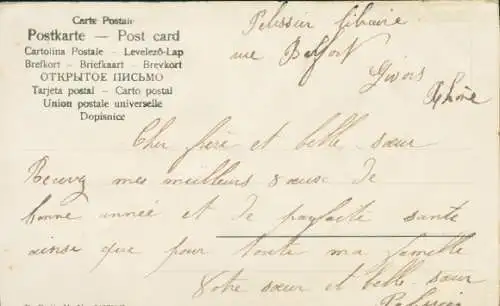 Carte Postale
Postkarte — Post card
Cartolina Postale – Levelező-Lap
Brefkort – Briefkaart – Brevkort
ОТКРЫТОЕ ПИСЬМО
Tarjeta postal – Carto postal
Union postale universelle
Dopisnice
Pelissier libraire
rue Belfort
Givors
Rhône
Cher frère et belle sœur
Recevez mes meilleurs vœux de
bonne année et de parfaite santé
ainsi que pour toute ma famille
Votre sœur et belle sœur